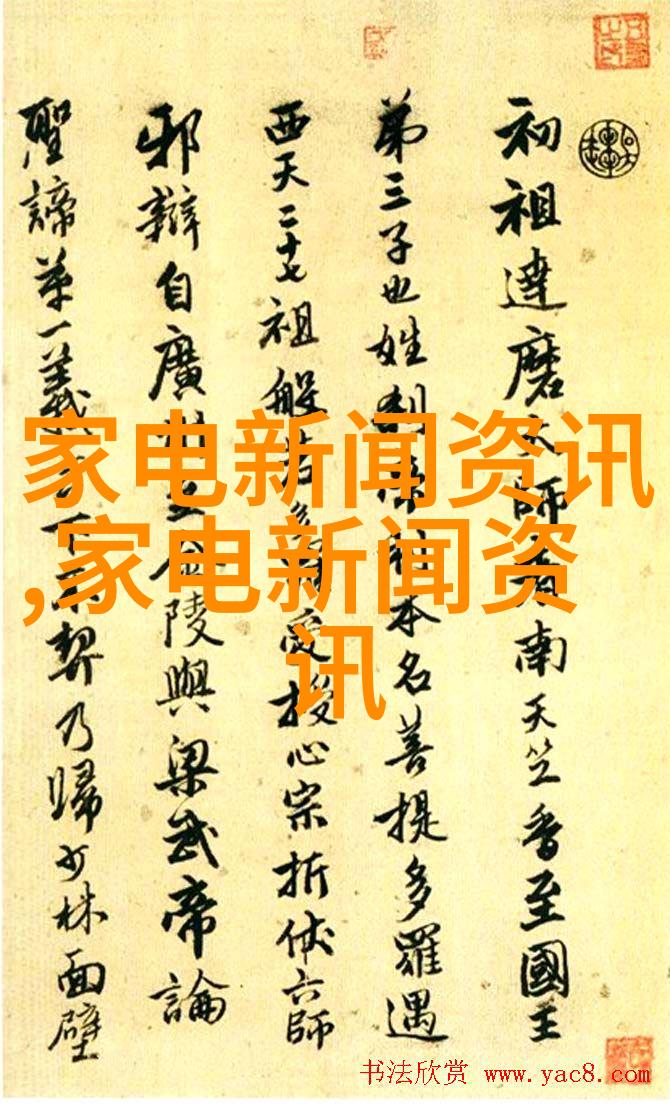 初祖達磨大師南天竺香至國王
第三子也姓刹本名菩提多羅遇
西天二十七祖般若受授心宗折伏六師
邪辯自廣金陵與梁武帝論
聖諦第一義下不契乃歸少林面壁
家电新闻资讯
,家电新闻资
讯
书法欣赏 www.yac8.com